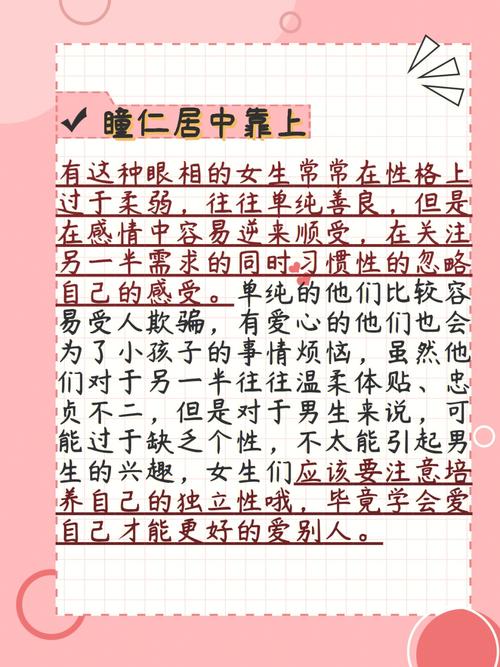 瞳仁居中靠上
有这种眼相的女生常常在性格上
过于柔弱，往往单纯善良，但是
在感情中容易逆来顺受，在关注
另一半需求的同时习惯性的忽略
自己的感受。单纯的他们比较容
易受人欺骗，有爱心的他们也会
为了小孩子的事情烦恼，虽然他
们对于另一半往往温柔体贴、忠
贞不二，但是对于男生来说，可
能过于缺乏个性，不太能引起男
生的兴趣，女生们应该要注意培
养自己的独立性哦，毕竟学会爱
自己才能更好的爱别人。